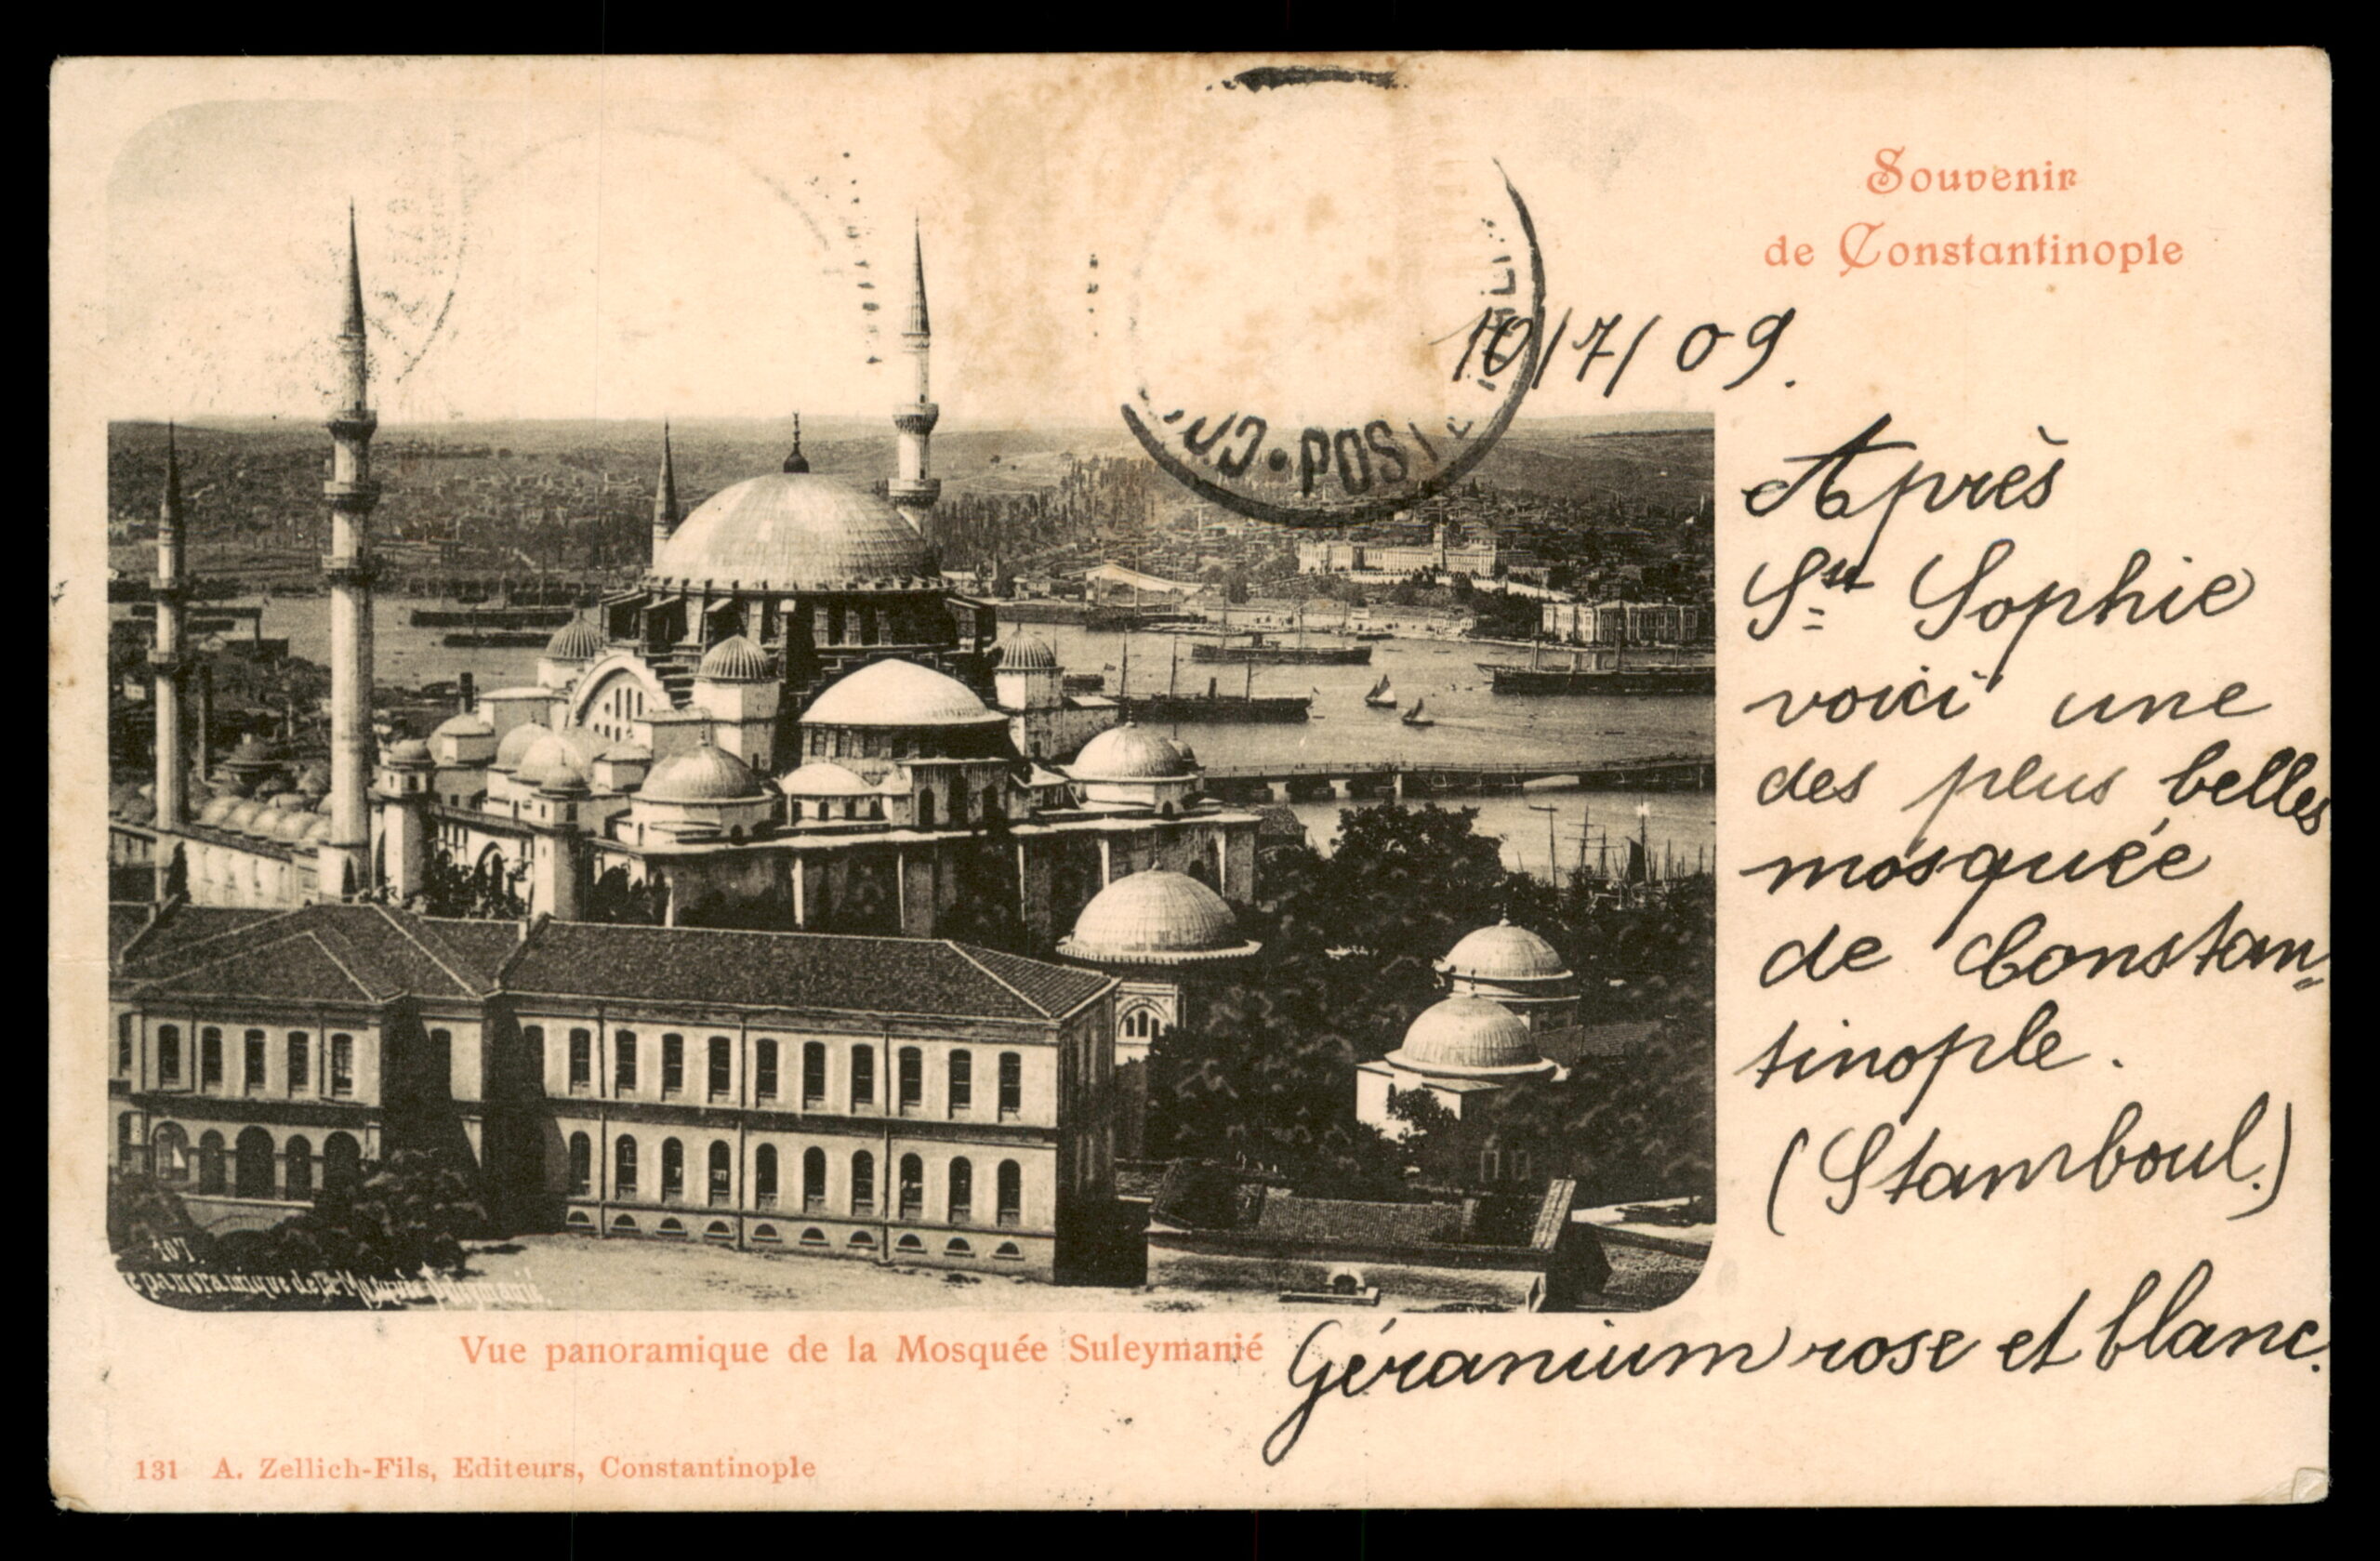 Souvenir
de Constantinople
10/7/09.
Après
Ste Sophie
voici une
des plus belles
mosquée
de Constan=
tinople.
(Stamboul.)
Géranium rose et blanc.
POST
107.
panoramique de la Mosquée Suleymanié.
Vue panoramique de la Mosquée Suleymanié
131 A. Zellich-Fils, Editeurs, Constantinople